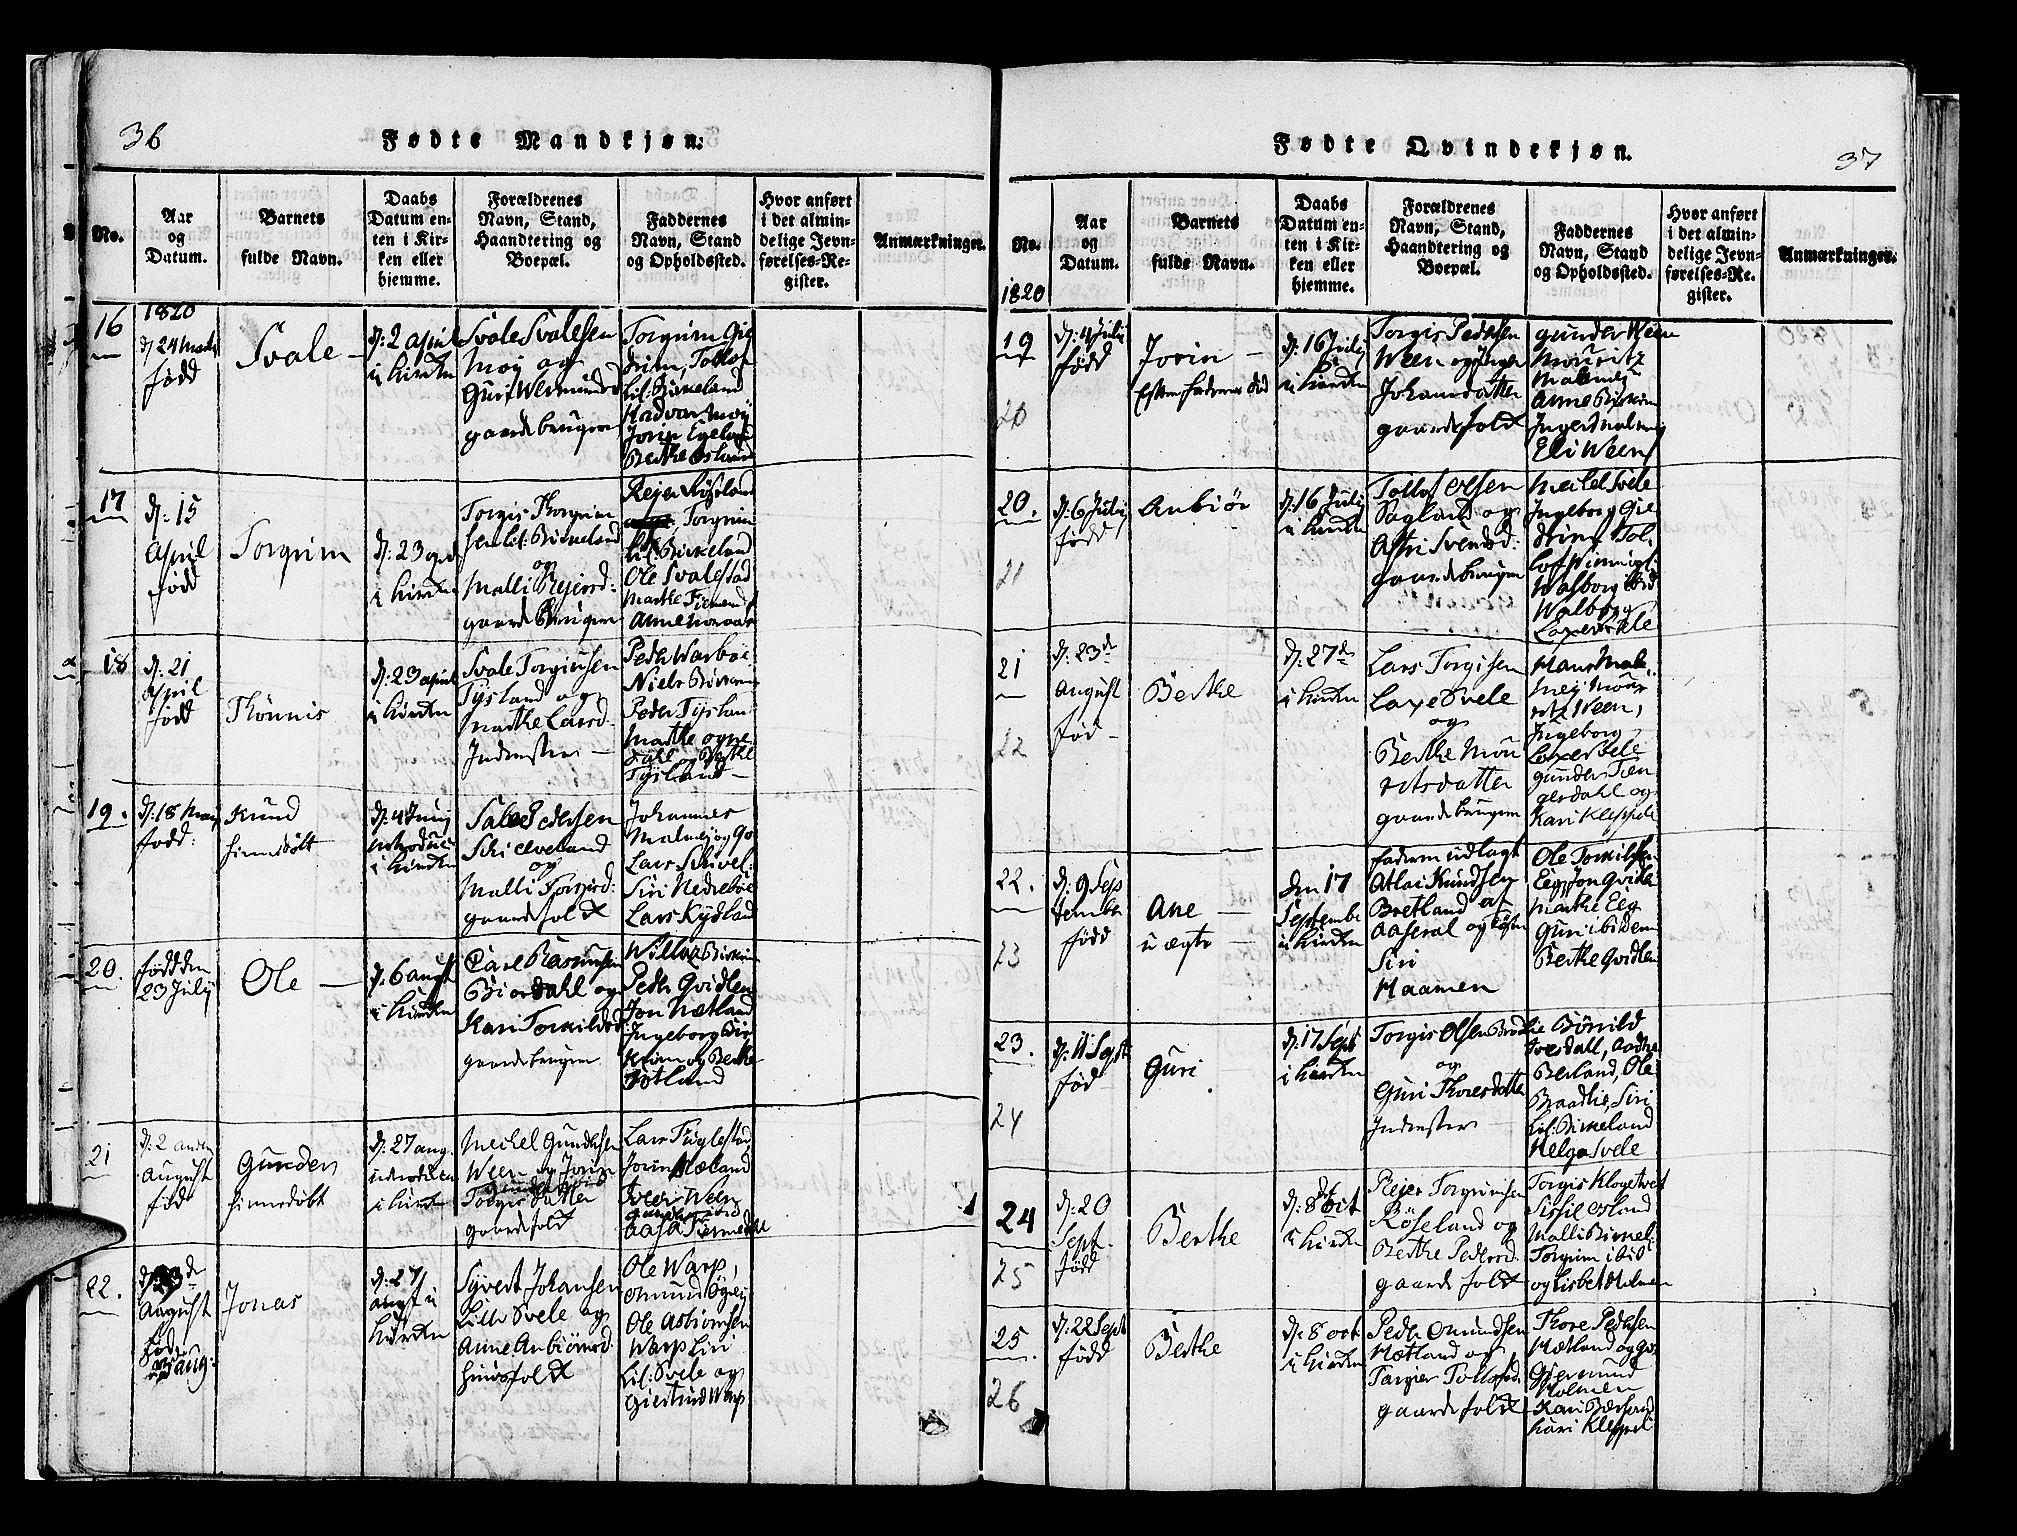 36
Fødte Mandkjøn.
No.
Aar
og
Datum.
Barnets
fulde Navn.
Daabs
Datum en-
ten i Kir-
ken eller
hjemme.
Forældrenes
Navn, Stand,
Haandtering og
Boepæl.
Faddernes
Navn, Stand
og Opholdssted.
Hvor anført
i det almin-
delige Jevn-
førelses-Re-
gister.
Anmærkninger.
16
1820
født
Svale
d: 2 april
i Kirken
Svale Svalesen
Moy og
Guri
gaardbruger
Torgrim Gie
drim, Tollof
Lil: Birkeland
Hadvar Moy
Jorin Egeland
Berthe Osland
17
d: 15
April
født
Torgrim
d: 23
i Kirken
Torgis Thorgrim
sen lil: Birkeland
og
Malli Rejersd:
gaardbruger
Rejer Røseland
Torgrim
lil: Birkeland
Ole Svalestad
Marthe
Anne
18
d: 21
April
født
Thønnis
d: 23 april
i Kirken
Svale Torgiusen
Tysland og
Marthe Larsd:
Inderster
Peder Warboe
Niels
Peder Tyslan
Marthe ogne
dahl og Berthe
Tysland
19.
d: 18 May
født
Knud
hiemedøbt
d: 4 Juny
introducer
i Kirken
Pedersen
Schielveland
og
Malli Torgisd:
gaardfolk
Johannes
Malmej og Go
Lars Schivel:
Siri Nedrebøe
Lars Kydland
20.
født den
23 July
Ole
d: 6 augst
i Kirken
Carl Rasmusen
Biordahl og
Kari Tormildsd
gaardbruger
Peder Qvidlen
Jon Hætland
Ingeborg Bir
krem og Berthe
21
d: 2
August
født
Gunder
hiemedøbt
d: 27 aug.
introducer
i Kirken
Mechel Gundersen
Ween og Jorin
Torgis datter
gaardfolk
Lars Fuglestad
Jorin Mæland
Iver Ween
22.
August
fød
aug:
Jonas
d: 27
augst i
Kirken
Syvert Johansen
Lille Svele og
Anne Anbiørnsd
huusfolk
Ole Warp,
Omund
Ole Asbiornsen
Warp Siri
Lil: Svele og
Giertrud Warp
Fødte Qvindekjøn.
37
No.
Aar
og
Datum.
Barnets
fulde Navn.
Daabs
Datum en-
ten i Kir-
ken eller
hjemme.
Forældrenes
Navn, Stand,
Haandtering og
Boepæl.
Faddernes
Navn, Stand
og Opholdssted.
Hvor anført
i det almin-
delige Jevn-
førelses-Re-
gister.
Anmærkninger.
1820
19
20
d: 4 July
født
Jorin
Efter faderens død
d: 16 July
i Kirken
Torgis Pedersen
Ween og Inger
Johansdatter
gaardfolk
Gunder Ween
Mouritz
Malmej
Anne Birkrem
Inger Malmej
Eli Ween
20.
21
d: 6 July
født
Anbiør
d: 16 July
i Kirken
Tollof Olsen
Sagland og
Astri Svensd:
gaardbruger
Mechel Svele
Ingeborg Gie
drim, Tol
lof
Walborg ibid
Walborg
Laxesvele
21
22
d: 23de
August
fød
Berthe
d: 27de
i Kirken
Lars Torgisen
Laxesvele
og
Berthe Mou
ritsdatter
gaardbruger
Hans Mal
mej Mou
ritz Ween,
Ingeborg
Laxesvele
Gunder Tien
gesdahl og
Kari Kleppele
22.
23
d: 9 Sep
tember
født
Ane
uægte
den 17
September
i Kirken
faderen udlagt
Atlai Knudsen
Bretland af
Aaseral og
Siri
Haamen
Ole Tormildsen
Eeg, Jon Qvidle
Marthe Eeg
Guri ibidem
Berthe Qvidlen
23.
24
d: 11 Sept
fød
Guri
d: 17 Sept
i Kirken
Torgis Olsen Braadlie
og
Guri Thoresdatter
Inderster
Bønild
Iversdall, Aadne
Berland, Ole
Braadlie, Siri
Lil: Birkeland
Helga Svele
24
25
d: 20
Sept.
født
Berthe
d: 8de oct
i Kirken
Rejer Torgrimsen
Røseland og
Berthe Pedersd
gaardfolk
Torgis Klogetvet
Sissil Osland
Malli Birkel:
Torgrim ibid
og Lisbet Holmen
25
26
d: 22 Sept
født
Berthe
d: 8 oct
i Kirken
Peder Omundsen
Hætland og
Targier Tollofsd
gaardfolk
Thore Pedersen
Hætland og Go
Gjermund
Holmen
Kari
Kari Kleppel